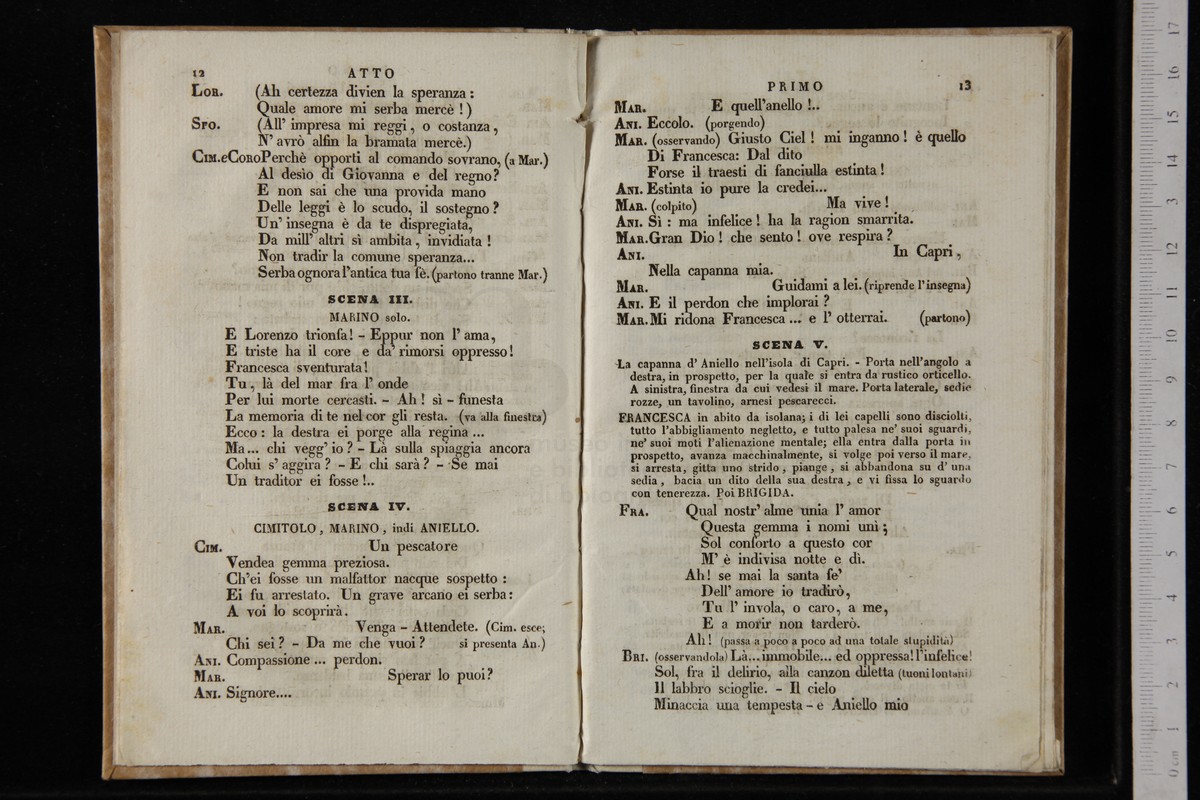 12 ATTO
LOR. (Ah certezza divien la speranza :
Quale amore mi serba mercè ! )
SPO. (All' impresa mi reggi, o costanza,
N' avrò alfin la bramata mercè.)
CIM.eCORO Perchè opporti al comando sovrano, (a Mar.)
Al desìo di Giovanna e del regno?
E non sai che una provida mano
Delle leggi è lo scudo, il sostegno ?
Un' insegna è da te dispregiata,
Da mill' altri sì ambita, invidiata !
Non tradir la comune speranza...
Serba ognora l'antica tua fè. (partono tranne Mar.)
SCENA III.
MARINO solo.
E Lorenzo trionfa! - Eppur non l' ama,
E triste ha il core e da' rimorsi oppresso!
Francesca sventurata!
Tu, là del mar fra l' onde
Per lui morte cercasti. - Ah ! sì - funesta
La memoria di te nel cor gli resta. (va alla finestra)
Ecco : la destra ei porge alla regina ...
Ma... chi vegg' io ? - Là sulla spiaggia ancora
Colui s' aggira ? - E chi sarà ? - Se mai
Un traditor ei fosse !..
SCENA IV.
CIMITOLO, MARINO, indi ANIELLO.
CIM. Un pescatore
Vendea gemma preziosa.
Ch'ei fosse un malfattor nacque sospetto :
Ei fu arrestato. Un grave arcano ei serba:
A voi lo scoprirà.
MAR. Venga - Attendete. (Cim. esce;
Chi sei ? - Da me che vuoi ? si presenta An.)
ANI. Compassione ... perdon.
MAR. Sperar lo puoi?
ANI. Signore....
PRIMO 13
MAR. E quell'anello !..
ANI. Eccolo. (porgendo)
MAR. (osservando) Giusto Ciel ! mi inganno ! è quello
Di Francesca: Dal dito
Forse il traesti di fanciulla estinta !
ANI. Estinta io pure la credei...
MAR. (colpito) Ma vive !
ANI. Sì : ma infelice ! ha la ragion smarrita.
MAR. Gran Dio ! che sento ! ove respira ?
ANI. In Capri,
Nella capanna mia.
MAR. Guidami a lei. (riprende l'insegna)
ANI. E il perdon che implorai ?
MAR. Mi ridona Francesca ... e l' otterrai. (partono)
SCENA V.
La capanna d' Aniello nell'isola di Capri. - Porta nell'angolo a
destra, in prospetto, per la quale si entra da rustico orticello.
A sinistra, finestra da cui vedesi il mare. Porta laterale, sedie
rozze, un tavolino, arnesi pescarecci.
FRANCESCA in abito da isolana; i di lei capelli sono disciolti,
tutto l'abbigliamento negletto, e tutto palesa ne' suoi sguardi,
ne' suoi moti l'alienazione mentale; ella entra dalla porta in
prospetto, avanza macchinalmente, si volge poi verso il mare,
si arresta, gitta uno strido, piange, si abbandona su d' una
sedia, bacia un dito della sua destra, e vi fissa lo sguardo
con tenerezza. Poi BRIGIDA.
FRA. Qual nostr' alme unia l' amor
Questa gemma i nomi unì ;
Sol conforto a questo cor
M' è indivisa notte e dì.
Ah! se mai la santa fe'
Dell' amore io tradirò,
Tu l' invola, o caro, a me,
E a morir non tarderò.
Ah ! (passa a poco a poco ad una totale stupidità)
BRI. (osservandola) Là... immobile... ed oppressa! l'infelice!
Sol, fra il delirio, alla canzon diletta (tuoni lontani)
Il labbro scioglie. - Il cielo
Minaccia una tempesta - e Aniello mio
0 cm 1 2 3 4 5 6 7 8 9 10 11 12 13 14 15 16 17